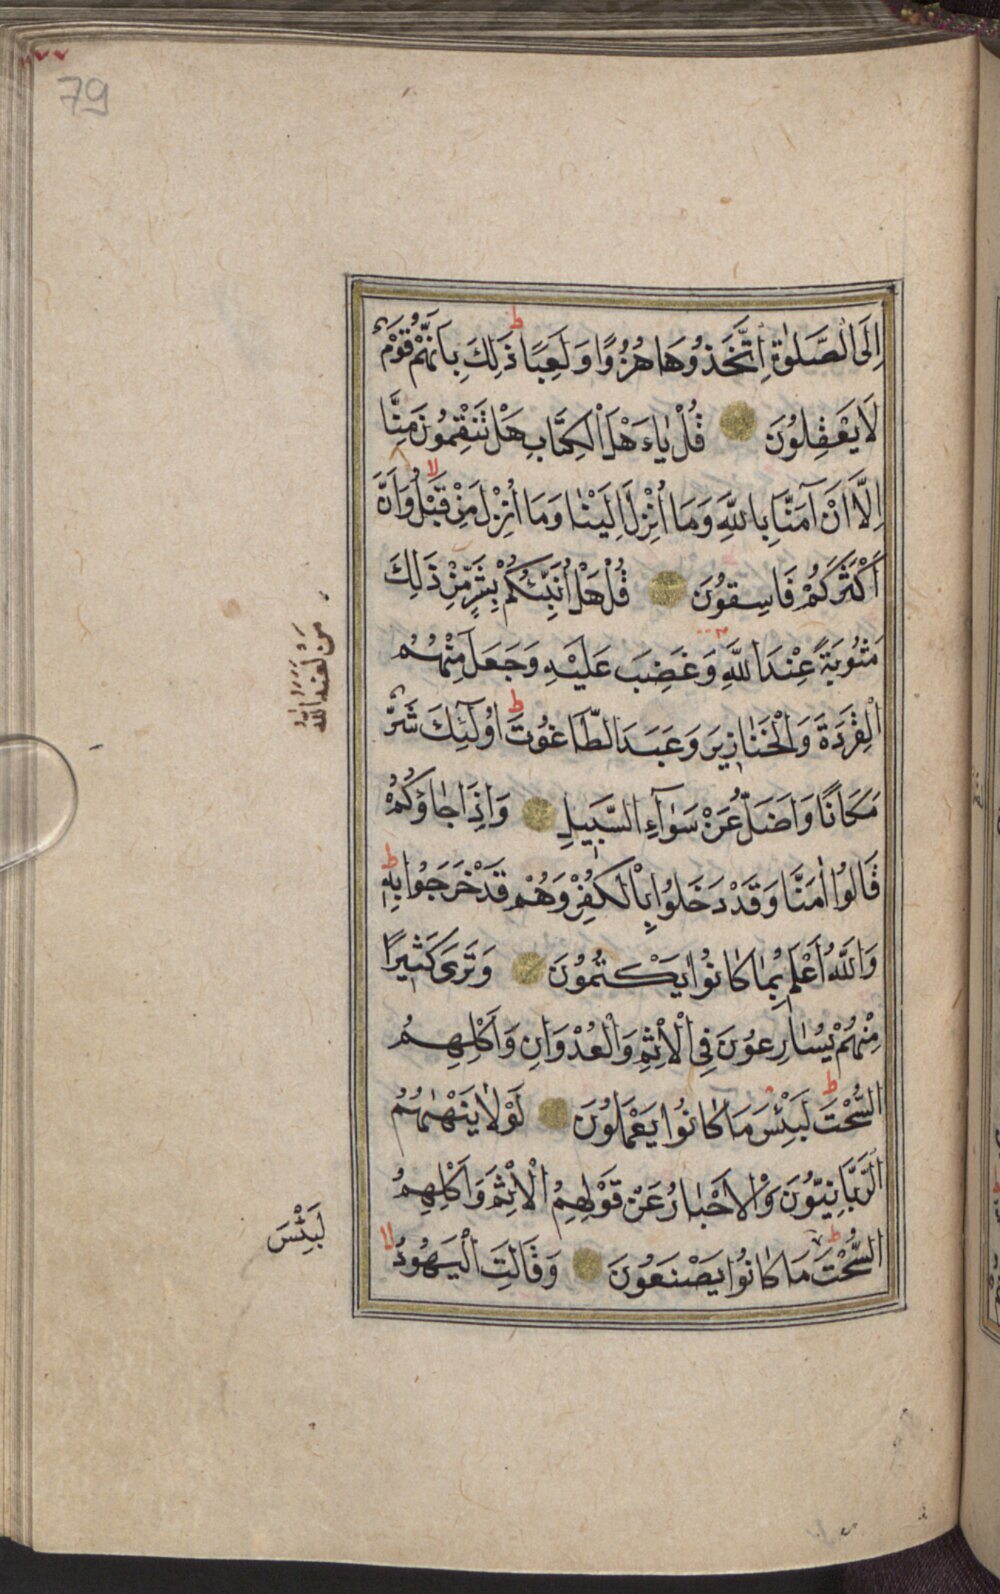 ٧٧
79
اِلَى الصَّلٰوةِ اتَّخَذُوهَا هُزُوًا وَلَعِبًا ذٰلِكَ بِاَنَّهُمْ قَوْمٌ
لَا يَعْقِلُونَ قُلْ يَاءَهْلَ الْكِتَابِ هَلْ تَنْقِمُونَ مِنَّا
اِلَّا اَنْ آمَنَّا بِاللّٰهِ وَمَا اُنْزِلَ اِلَيْنَا وَمَا اُنْزِلَ مِنْ قَبْلُ وَاَنَّ
اَكْثَرَكُمْ فَاسِقُونَ قُلْ هَلْ اُنَبِّئُكُمْ بِشَرٍّ مِنْ ذٰلِكَ
مَثُوبَةً عِنْدَ اللّٰهِ وَغَضِبَ عَلَيْهِ وَجَعَلَ مِنْهُمُ
الْقِرَدَةَ وَالْخَنَازِيرَ وَعَبَدَ الطَّاغُوتَ اُولٰٓئِكَ شَرٌّ
مَكَانًا وَاَضَلُّ عَنْ سَوَآءِ السَّبِيلِ وَاِذَا جَاؤُكُمْ
قَالُوا اٰمَنَّا وَقَدْ دَخَلُوا بِالْكُفْرِ وَهُمْ قَدْ خَرَجُوا بِهِ
وَاللّٰهُ اَعْلَمُ بِمَا كَانُوا يَكْتُمُونَ وَتَرٰى كَثِيرًا
مِنْهُمْ يُسَارِعُونَ فِي الْاِثْمِ وَالْعُدْوَانِ وَاَكْلِهِمُ
السُّحْتَ لَبِئْسَ مَا كَانُوا يَعْمَلُونَ لَوْلَا يَنْهٰيهُمُ
الرَّبَّانِيُّونَ وَالْاَحْبَارُ عَنْ قَوْلِهِمُ الْاِثْمَ وَاَكْلِهِمُ
السُّحْتَ مَا كَانُوا يَصْنَعُونَ وَقَالَتِ الْيَهُودُ
مَنْ لَعَنَهُ اللّٰهُ
لَبِئْسَ